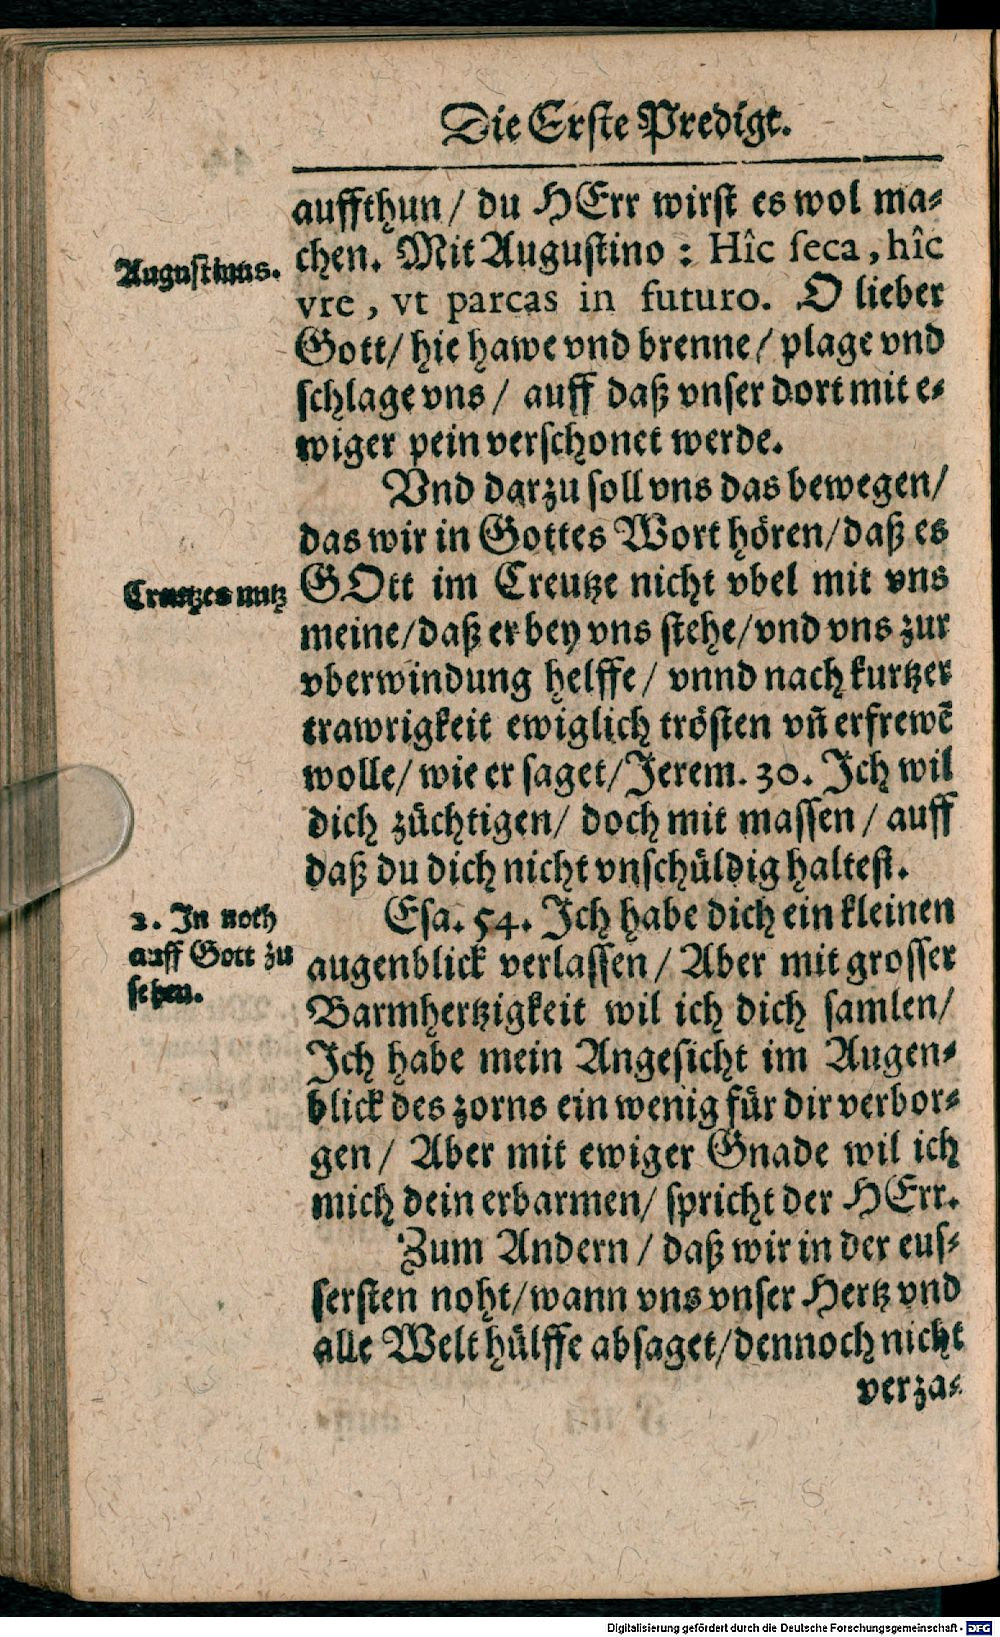 Die Erste Predigt.
auffthun / du HErr wirst es wol ma-
chen. Mit Augustino : Hîc seca, hîc
Augustinus.
vre, vt parcas in futuro. O lieber
Gott / hie hawe vnd brenne / plage vnd
schlage vns / auff daß vnser dort mit e-
wiger pein verschonet werde.
Vnd darzu soll vns das bewegen /
das wir in Gottes Wort hören / daß es
GOtt im Creutze nicht vbel mit vns
Creutzes nutz
meine / daß er bey vns stehe / vnd vns zur
vberwindung helffe / vnnd nach kurtzer
trawrigkeit ewiglich trösten vñ erfrewẽ
wolle / wie er saget / Jerem. 30. Jch wil
dich züchtigen / doch mit massen / auff
daß du dich nicht vnschüldig haltest.
Esa. 54. Jch habe dich ein kleinen
2. Jn noth
auff Gott zu
sehen.
augenblick verlassen / Aber mit grosser
Barmhertzigkeit wil ich dich samlen /
Jch habe mein Angesicht im Augen-
blick des zorns ein wenig für dir verbor-
gen / Aber mit ewiger Gnade wil ich
mich dein erbarmen / spricht der HErr.
Zum Andern / daß wir in der eus-
sersten noht / wann vns vnser Hertz vnd
alle Welt hülffe absaget / dennoch nicht
verza-
Digitalisierung gefördert durch die Deutsche Forschungsgemeinschaft - DFG